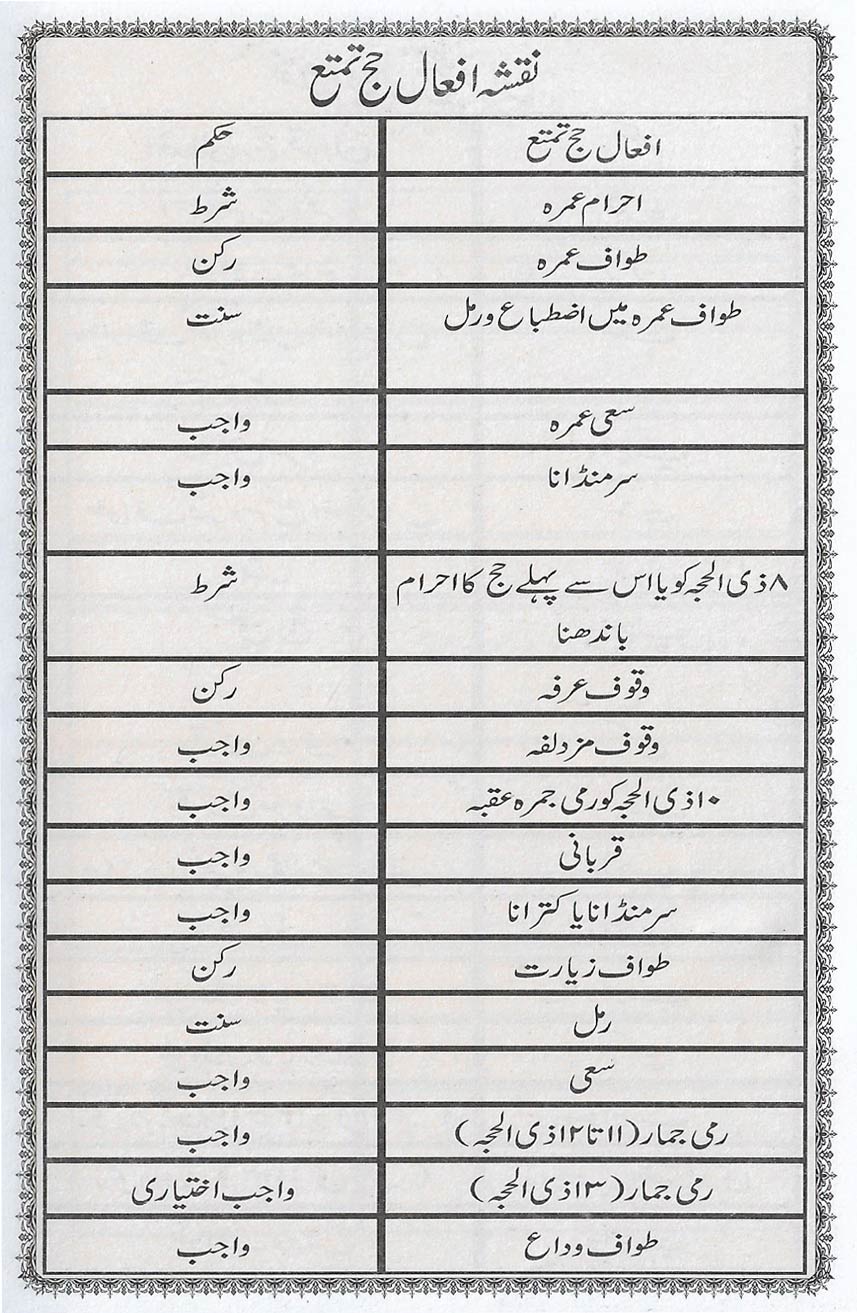 نقشہ افعال حج تمتع
افعال حج تمتع حکم
احرام عمرہ شرط
طواف عمرہ رکن
طواف عمرہ میں اضطباع ورمل سنت
سعی عمرہ واجب
سرمنڈانا واجب
۸ ذی الحجہ کو یا اس سے پہلے حج کا احرام شرط
باندھنا
وقوف عرفہ رکن
وقوف مزدلفہ واجب
۱۰ذی الحجہ کو رمی جمرہ عقبہ واجب
قربانی واجب
سرمنڈانا یا کترانا واجب
طواف زیارت رکن
رمل سنت
سعی واجب
رمی جمار (۱۱تا۱۲ذی الحجہ) واجب
رمی جمار (۱۳ذی الحجہ) واجب اختیاری
طواف وداع واجب